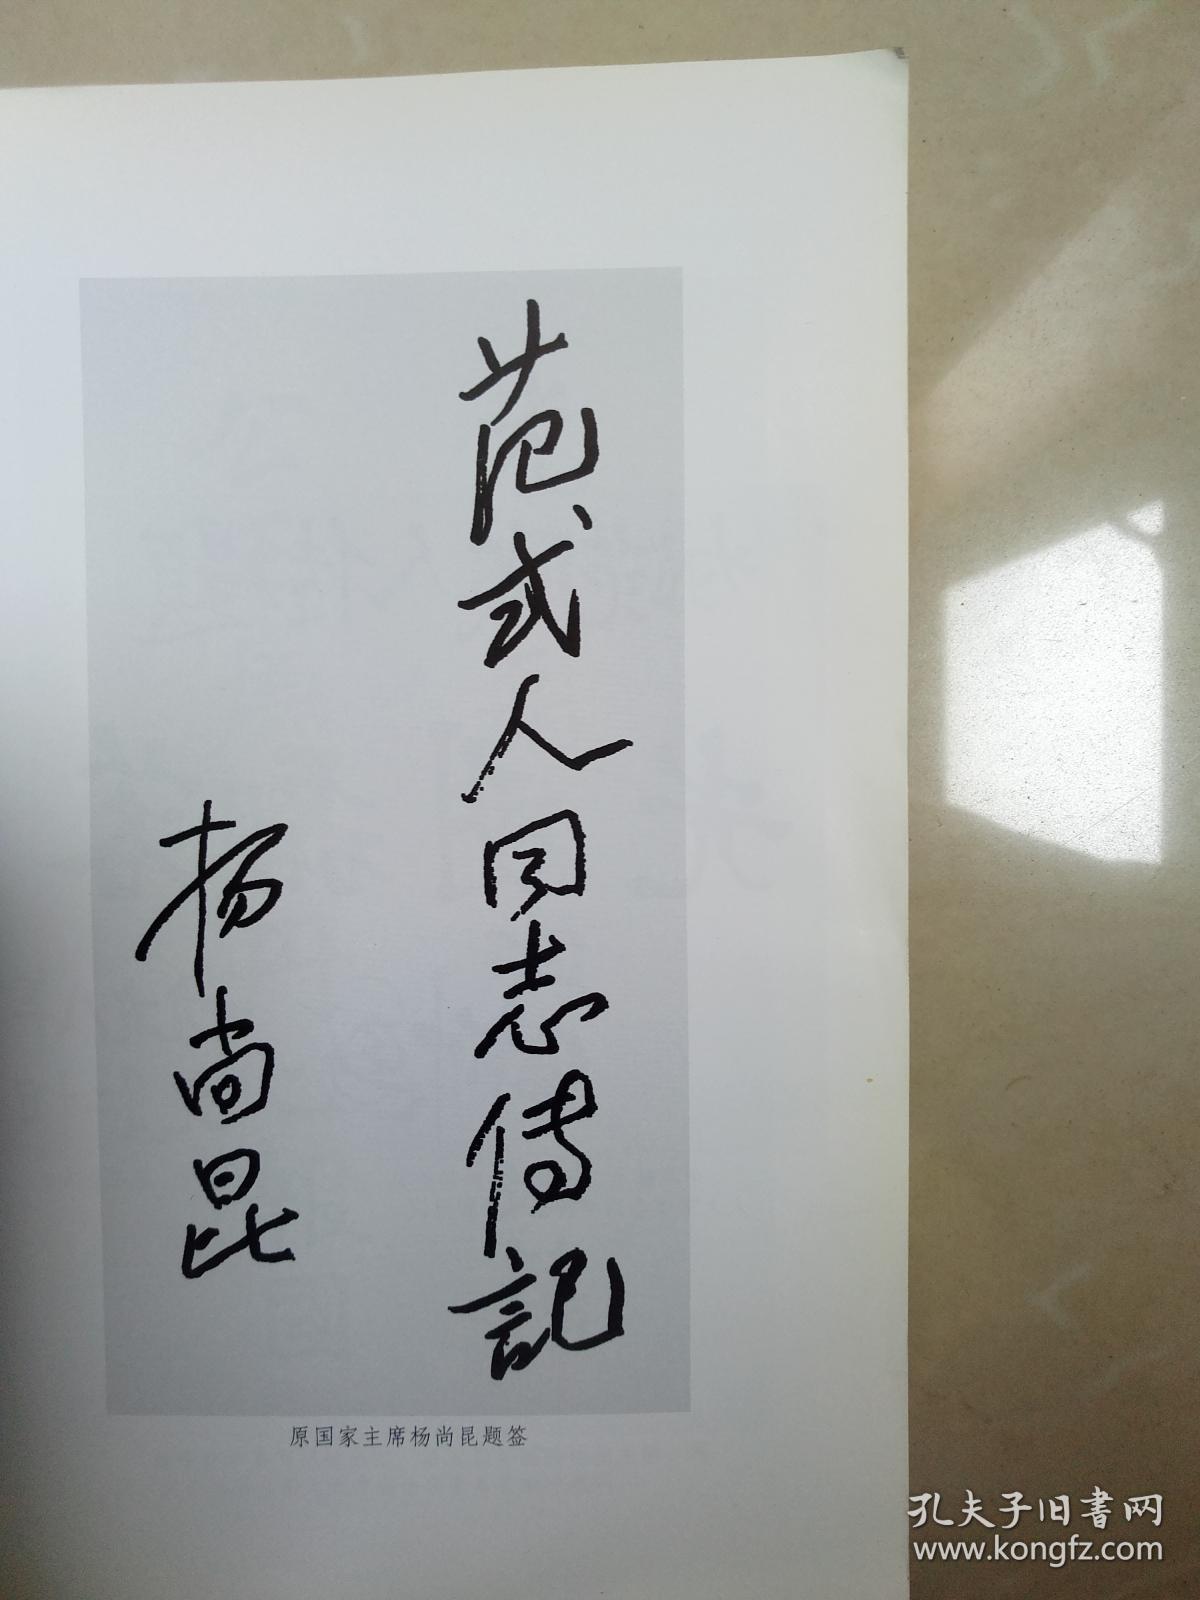 范式人同志傳記
杨尚昆
原国家主席杨尚昆题签
孔夫子旧書网
www.kongfz.com